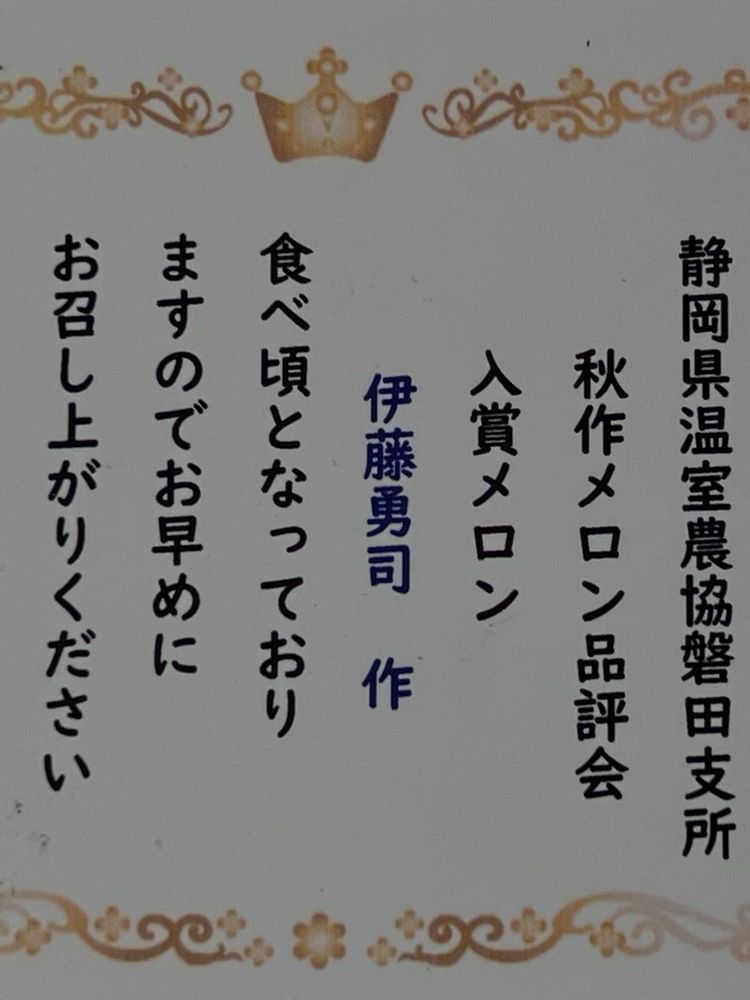 静岡県温室農協磐田支所
秋作メロン品評会
入賞メロン
伊藤勇司 作
食べ頃となっており
ますのでお早めに
お召し上がりください